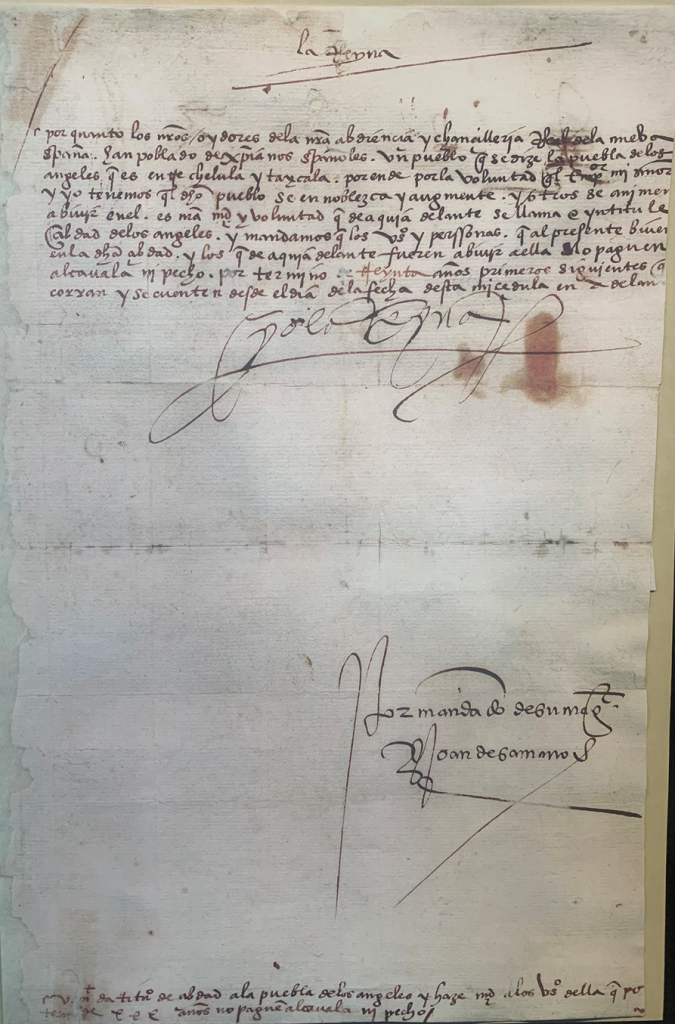 la Reyna
por quanto los nros oydores dela nra abdiençia y chançilleria Real dela nueva
españa. han poblado de xpianos españoles. vn pueblo q se dize la puebla delos
angeles q es entre chelula y taxcala. porende porla voluntad ql emp.or mi señor
y yo tenemos ql dho pueblo se ennoblezca y augmente. y otros se animen
abiuir enel. es mi md y voluntad q de aqui adelante se llame e yntitule
çibdad delos angeles. y mandamos q los vos y perssonas. que al presente biuen
enla dha çibdad. y los q de aqui adelante fueren abiuir aella no paguen
alcavala ni pecho. por termino de treynta años primeros siguientes q
corran y se cuenten desde el dia dela fecha desta mi cedula en adelan
yo la Reyna
Por mandado de su mag.t
Joan de samano
V. m da titu.o de çibdad ala puebla delos angeles y haze md alos vos della q por
termi.o de xxx años no paguen alcavala ni pecho